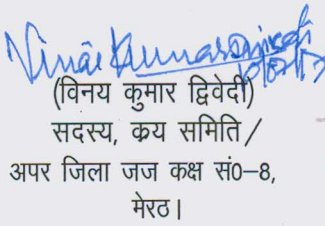 Vinai Kumar Dwivedi
(विनय कुमार द्विवेदी)
सदस्य, क्रय समिति /
अपर जिला जज कक्ष सं0-8,
मेरठ।